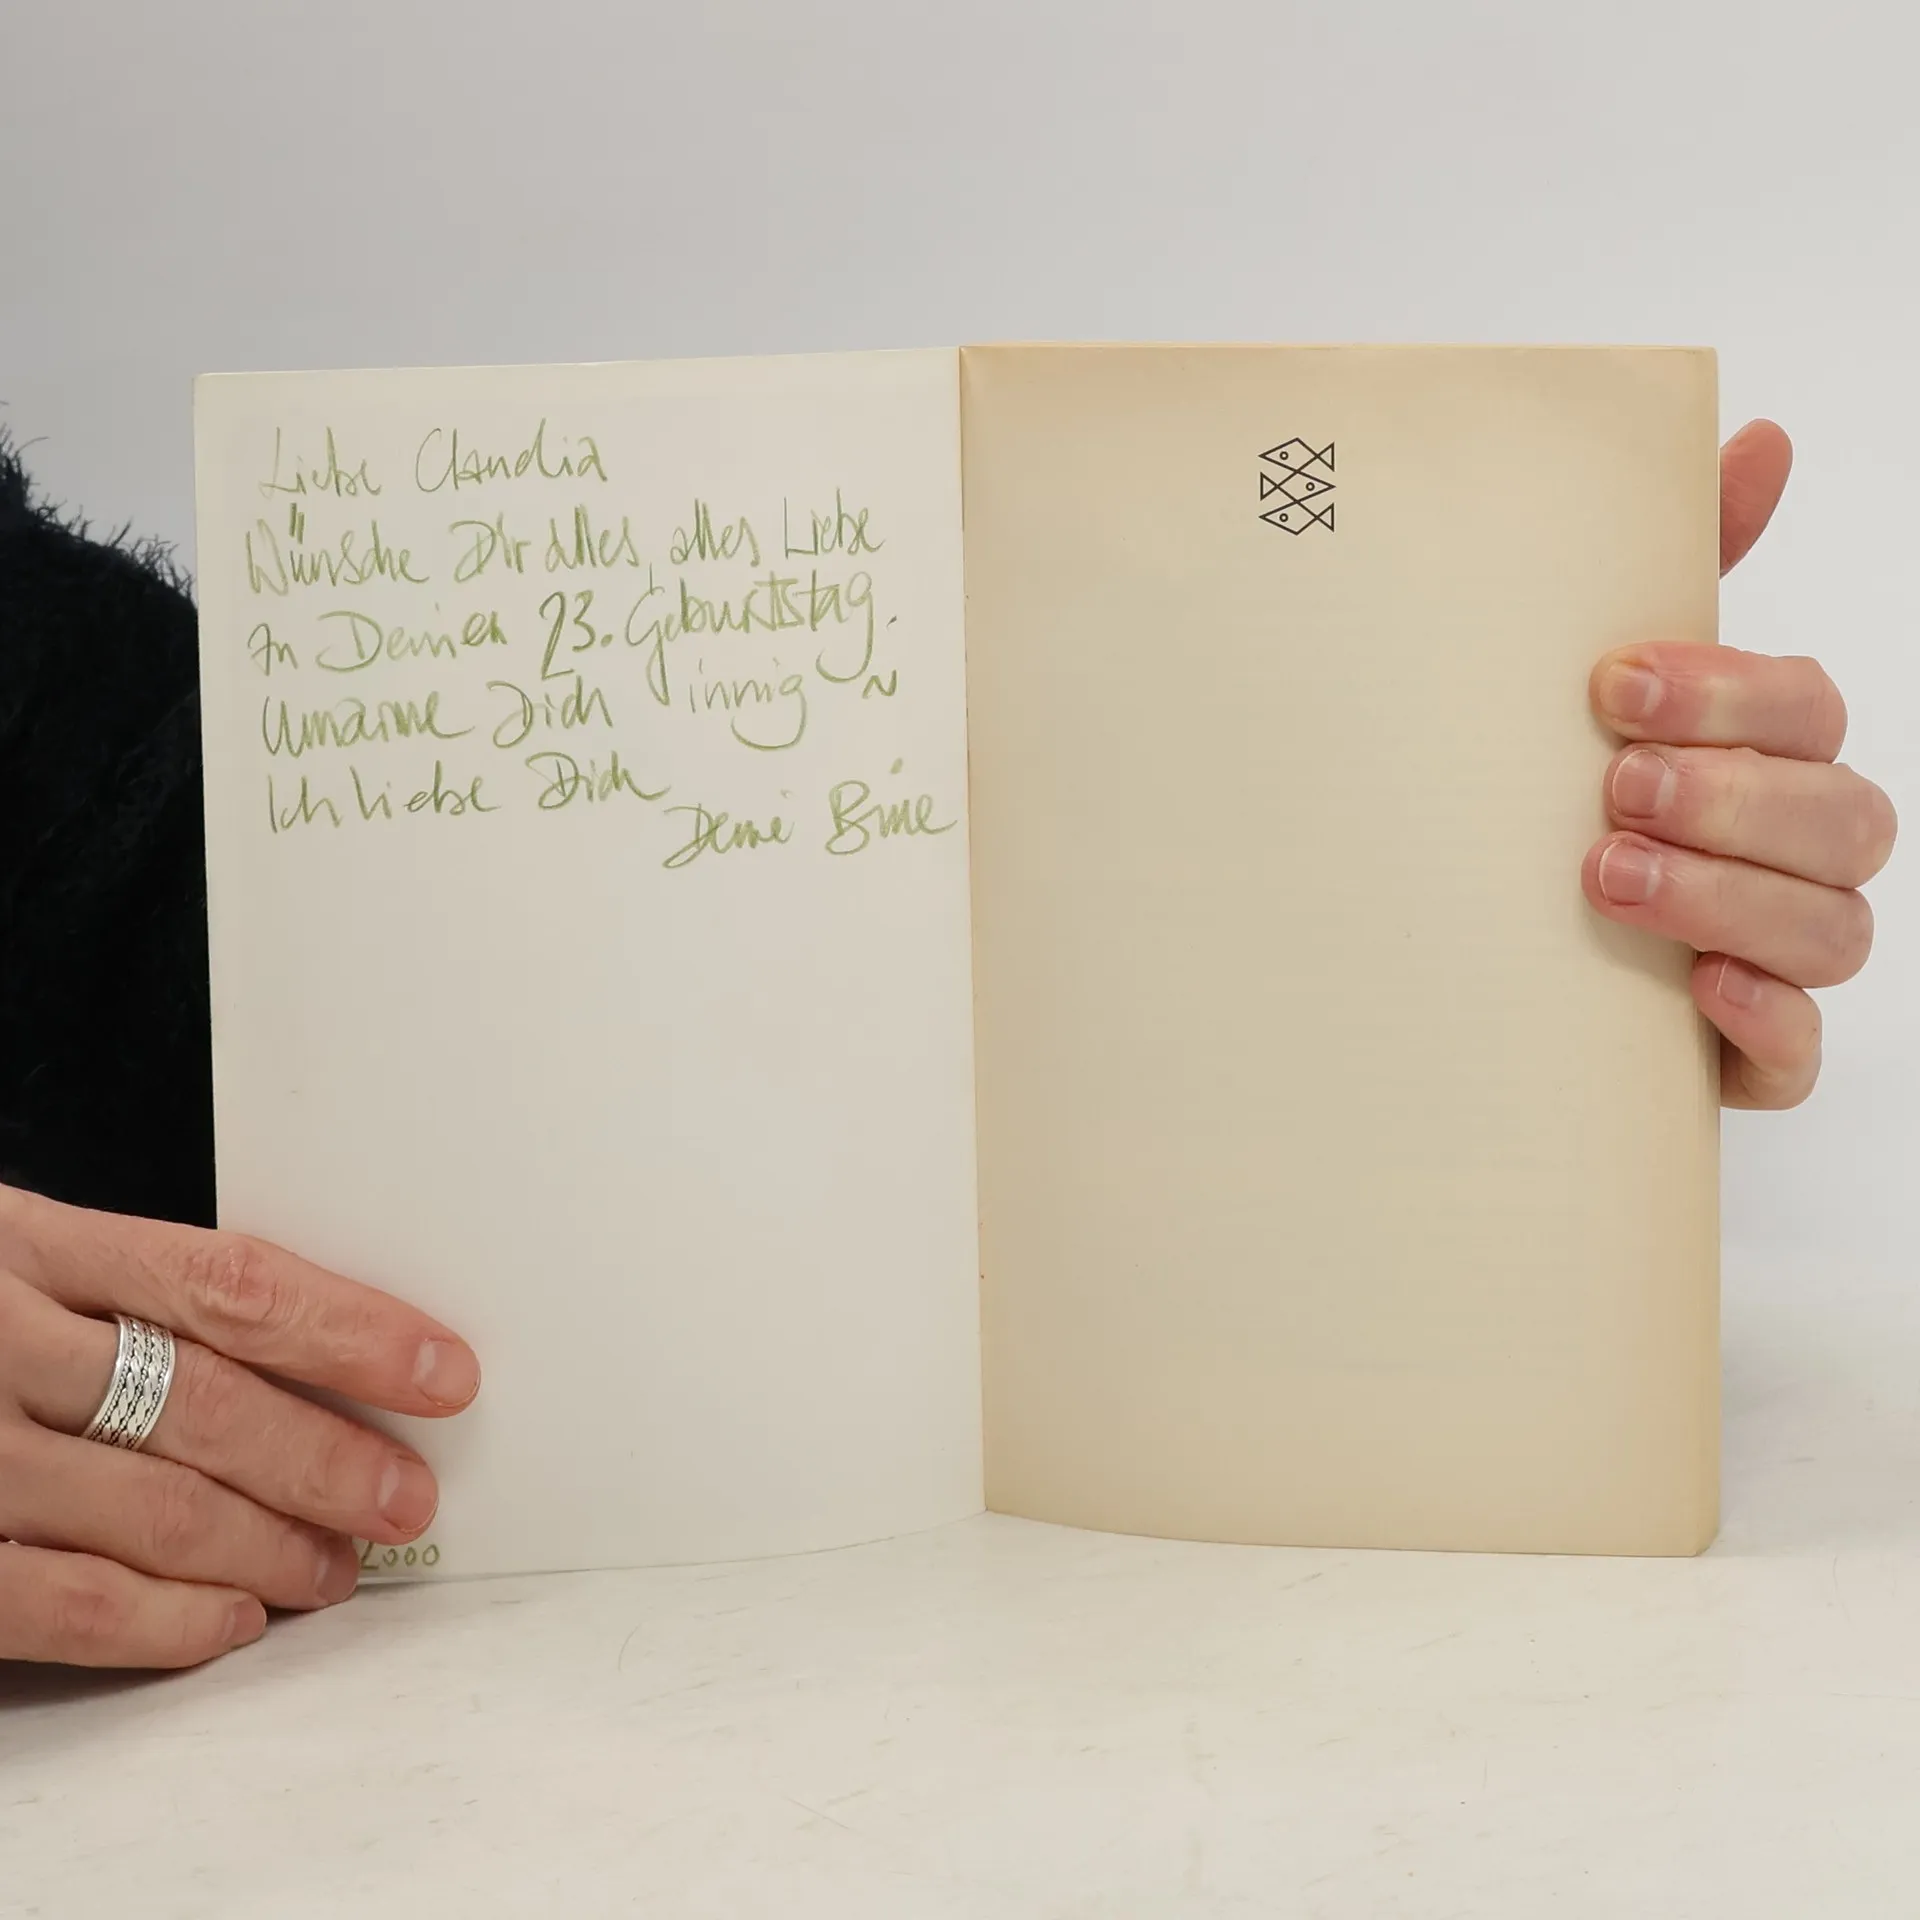 Liebe Claudia
Wünsche Dir alles, alles Liebe
zu Deinen 23. Geburtstag.
Umarme Dich innig ~
Ich liebe Dich
Deine Bine
2000